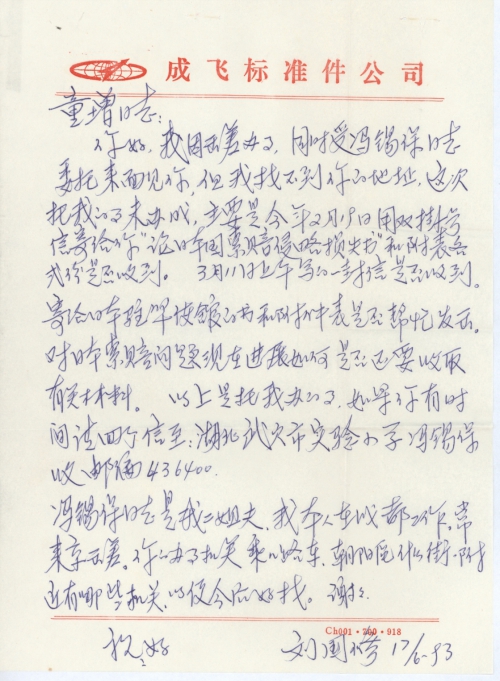 成飞标准件公司
童增同志:
你好,我因出差办事,同时受冯锡保同志
委托来面见你,但我找不到你的地址,这次
托我的事未办成,主要是今年2月19日用双挂号
信寄给你"论日本国索赔侵略损失书"和附表各
式份是否收到。3月11日上午寄的一封信是否收到。
寄给日本驻华使馆的书和附件表是否帮忙发出。
对日本索赔问题现在进展如何是否还要收取
有关材料。以上是托我办的事,如果你有时
间请回个信至:湖北武穴市实验小学冯锡保
收邮编436400.
冯锡保同志是我二姐夫,我本人在成都工作,常
来京出差。你的办事机关乘几路车,朝阳区什么街,附
近有哪些机关,以便今后好找。谢谢
Ch001·200·918
祝好
刘国 17/6-93